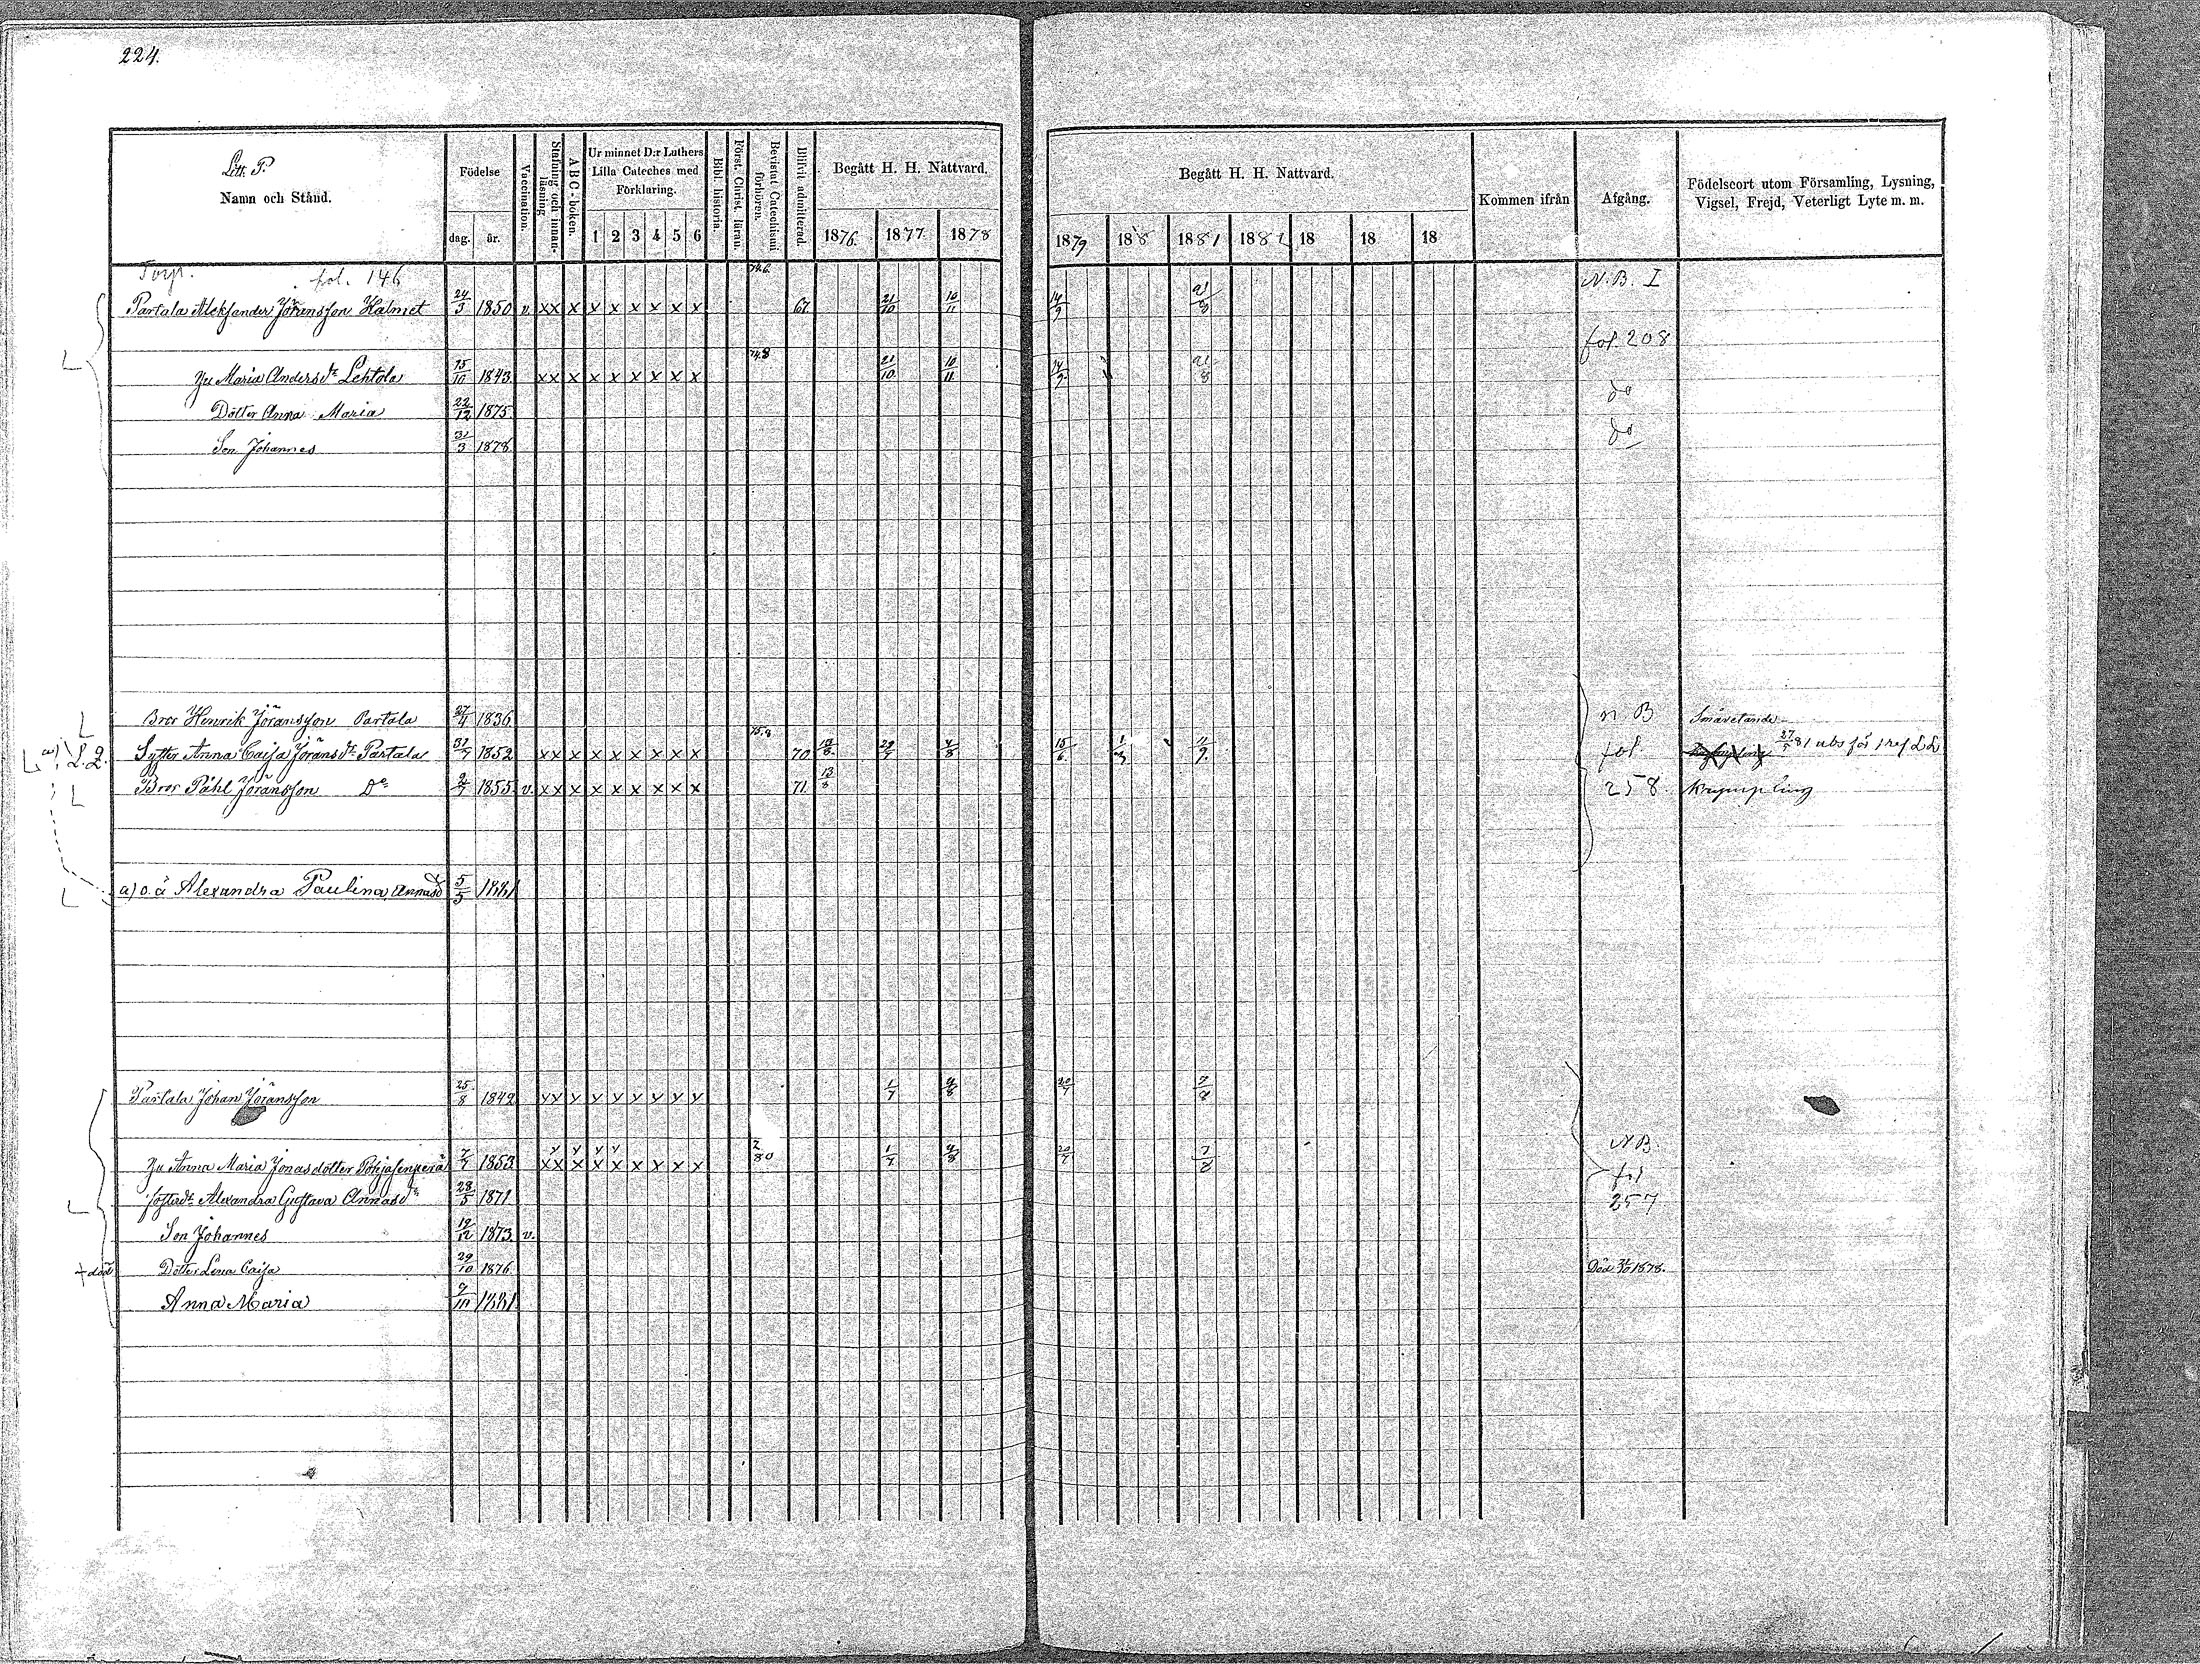 224.
Litt. P.
Namn och Stånd.
Födelse
dag.
år.
Vaccination.
Stafning och innan-läsning
A B C-boken.
Ur minnet D:r Luthers Lilla Cateches med Förklaring.
1 2 3 4 5 6
Bibl. historia.
Först. Christ. läran.
Bevistat Catechismi förhören.
Blifvit admitterad.
Begått H. H. Nattvard.
1876. 1877 1878
Begått H. H. Nattvard.
1879 188 1881 1882 18 18 18
Kommen ifrån
Afgång.
Födelseort utom Församling, Lysning, Vigsel, Frejd, Veterligt Lyte m. m.
Torp. fol. 146 N. B. I
Partala Aleksander Jöransson Halmet 24/3 1850 v. x x x x x x x x x 67. 21/10 10/11 14/9 21/8
fol. 208
L
74.8
hu Maria Andersdr Lehtola 15/10 1843 x x x x x x x x x 21/10 10/11 14/9 21/8
do
Dotter Anna Maria 22/12 1875
do
Son Johannes 31/3 1878
L Bror Henrik Jöransson Partala 27/4 1836 n. B Småvetande
75.8
L. a) L. 2. Syster Anna Caisa Jöransdr Partala 31/7 1852 x x x x x x x x x 70 13/8 29/7 4/8 15/6 fol. 27/5 81 abs för 1 ref L L
L Bror Påhl Jöransson Do 2/7 1855 v. x x x x x x x x x 71. 13/8 258. Krympling
L a) o. ä Alexandra Paulina, Annasd 5/5 1881
Partala Johan Jöransson 25/8 1842 x x x x x x x x x 1/7 4/8 20/7 7/8
N B.
hu Anna Maria Jonasdotter Pohjasenperä 7/7 1853 x x x x x x x x x 1/7 4/8 20/7 7/8
fol
L Fosterdr Alexandra Gustava Annasdr 28/5 1871 257
Son Johannes 19/12 1873 v.
+ död Dotter Lena Caisa 29/10 1876 Död 1878.
Anna Maria 7/10 1881